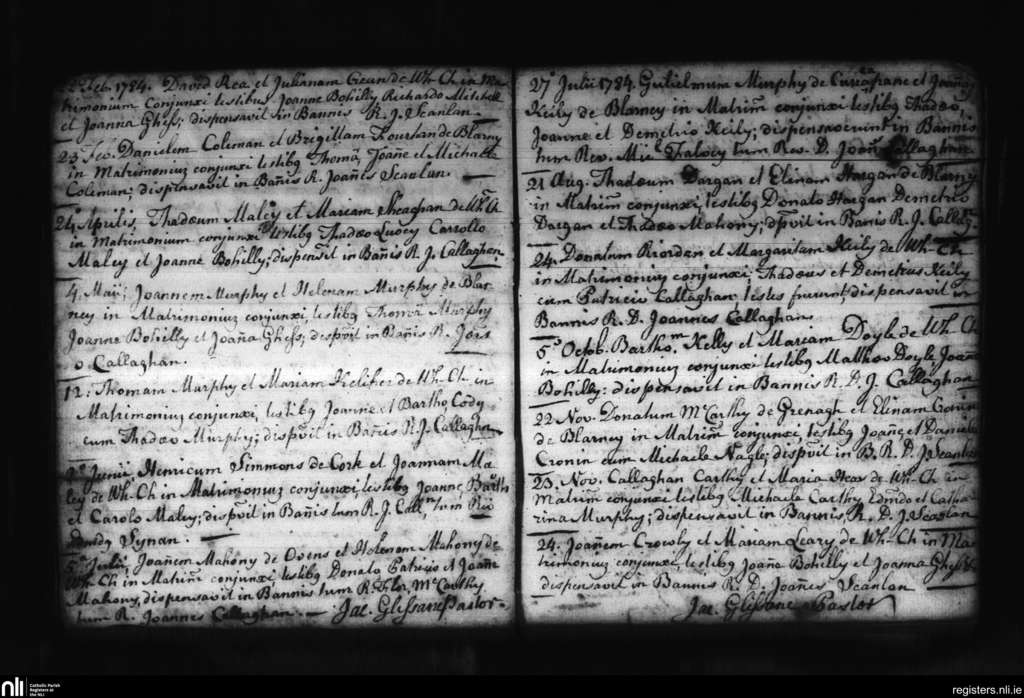 2 Feb. 1784. David Rea et Julianam Crean de Wh. Ch in Ma
trimonium Conjunxi testibus Joanne Bohilly Richardo Mitchell
et Joanna Ghess; dispensavit in Bannis R. J. Scanlan.
23 Feb. Danielem Coleman et Brigittam de Blarny
in Matrimonium conjunxi testibq Thoma, Joañe et Michaele
Coleman; dispensavit in Bañis R. Joañes Scanlan.
24 Aprilis, Thadæum Maley et Mariam Sheaghan de Wh. Ch
in Matrimonium conjunxi testibq Thadæo Lucey Carrollo
Maley et Joanne Bohilly; dispensit in Bañis R. J. Callaghan
4 Maii; Joannem Murphy et Helenam Murphy de Blar
ney in Matrimoniuz conjunxi, testibq Thoma Murphy
Joanne Bohilly et Joaña Ghess; dispvit in Bañis R. Joẽs
o Callaghan.
12. Thomam Murphy et Mariam Kelifer de Wh. Ch. in
Matrimoniuz conjunxi, testibq Joanne et Bartho. Cody
cum Thadæo Murphy; dispvit in Bañis R. J. Callaghn
Junii Henricum Simmons de Cork et Joannam Ma
ley de Wh. Ch in Matrimoniuz conjunxi, testibq Joanne Barth
et Carolo Maley; dispvit in Bañis tum R. J. Call, tum Rev
Synan.
5 Julii, Joañem Mahony de Ovens et Helenam Mahony de
Wh. Ch in Matrim conjunxi testibq Donato Patricio et Joañe
Mahony, dispensavit in Bannis tum R. Flor. McCarthy
tum R. Joannes Callaghan. Jac. Glissane Pastor.
27 Julii 1784. Gulielmum Murphy de et
Keily de Blarney in Matrim conjunxi testibq Thadæo,
Joanne et Demetrio Keily; dispensaverunt in Bannis
tum Rev. Mic. Falvey tum Rev. D. Joañ Callaghan
21 Aug. Thadæum Dargan et Elinam Horgan de Blarny
in Matrim conjunxi, testibq Donato Horgan Demetrio
Dargan et Thadæo Mahony; dpvit in Banis R. J. Callag.
24. Donatum Riordan et Margaritam Keily de Wh. Ch
in Matrimoniuz conjunxi; Thadæus et Demetrius Keily
cum Patricio Callaghan testes fuerunt dispensavit in
Bannis R. D. Joannes Callaghan
5 Octob. Barthom. Kelly et Mariam Doyle de Wh. Ch
in Matrimoniuz conjunxi testibq Mathæo Doyle Joañe
Bohilly: dispensavit in Bannis R. D. J. Callaghan
22 Nov. Donatum McCarthy de Grenagh et Elinam Cronin
de Blarney in Matrim conjunxi, testibq Joañe et Daniele
Cronin cum Michaele Nagle; dispvit in B. R. D. J. Scanlan
23. Nov. Callaghan Carthy et Maria de Wh. Ch in
Matrim conjunxi testibq Michaele Carthy Edmdo et Catha
rina Murphy; dispensavit in Bannis, R. D. J. Scanlan
24. Joañem Crowly et Mariam Leary de Wh. Ch in Ma
trimoniuz conjunxi testibq Joañe Bohilly et Joanna Ghess
dispensavit in Bannis R. D. Joañes Scanlan
Jac. Glissane Pastor
nli Catholic Parish
Registers at
the NLI
registers.nli.ie